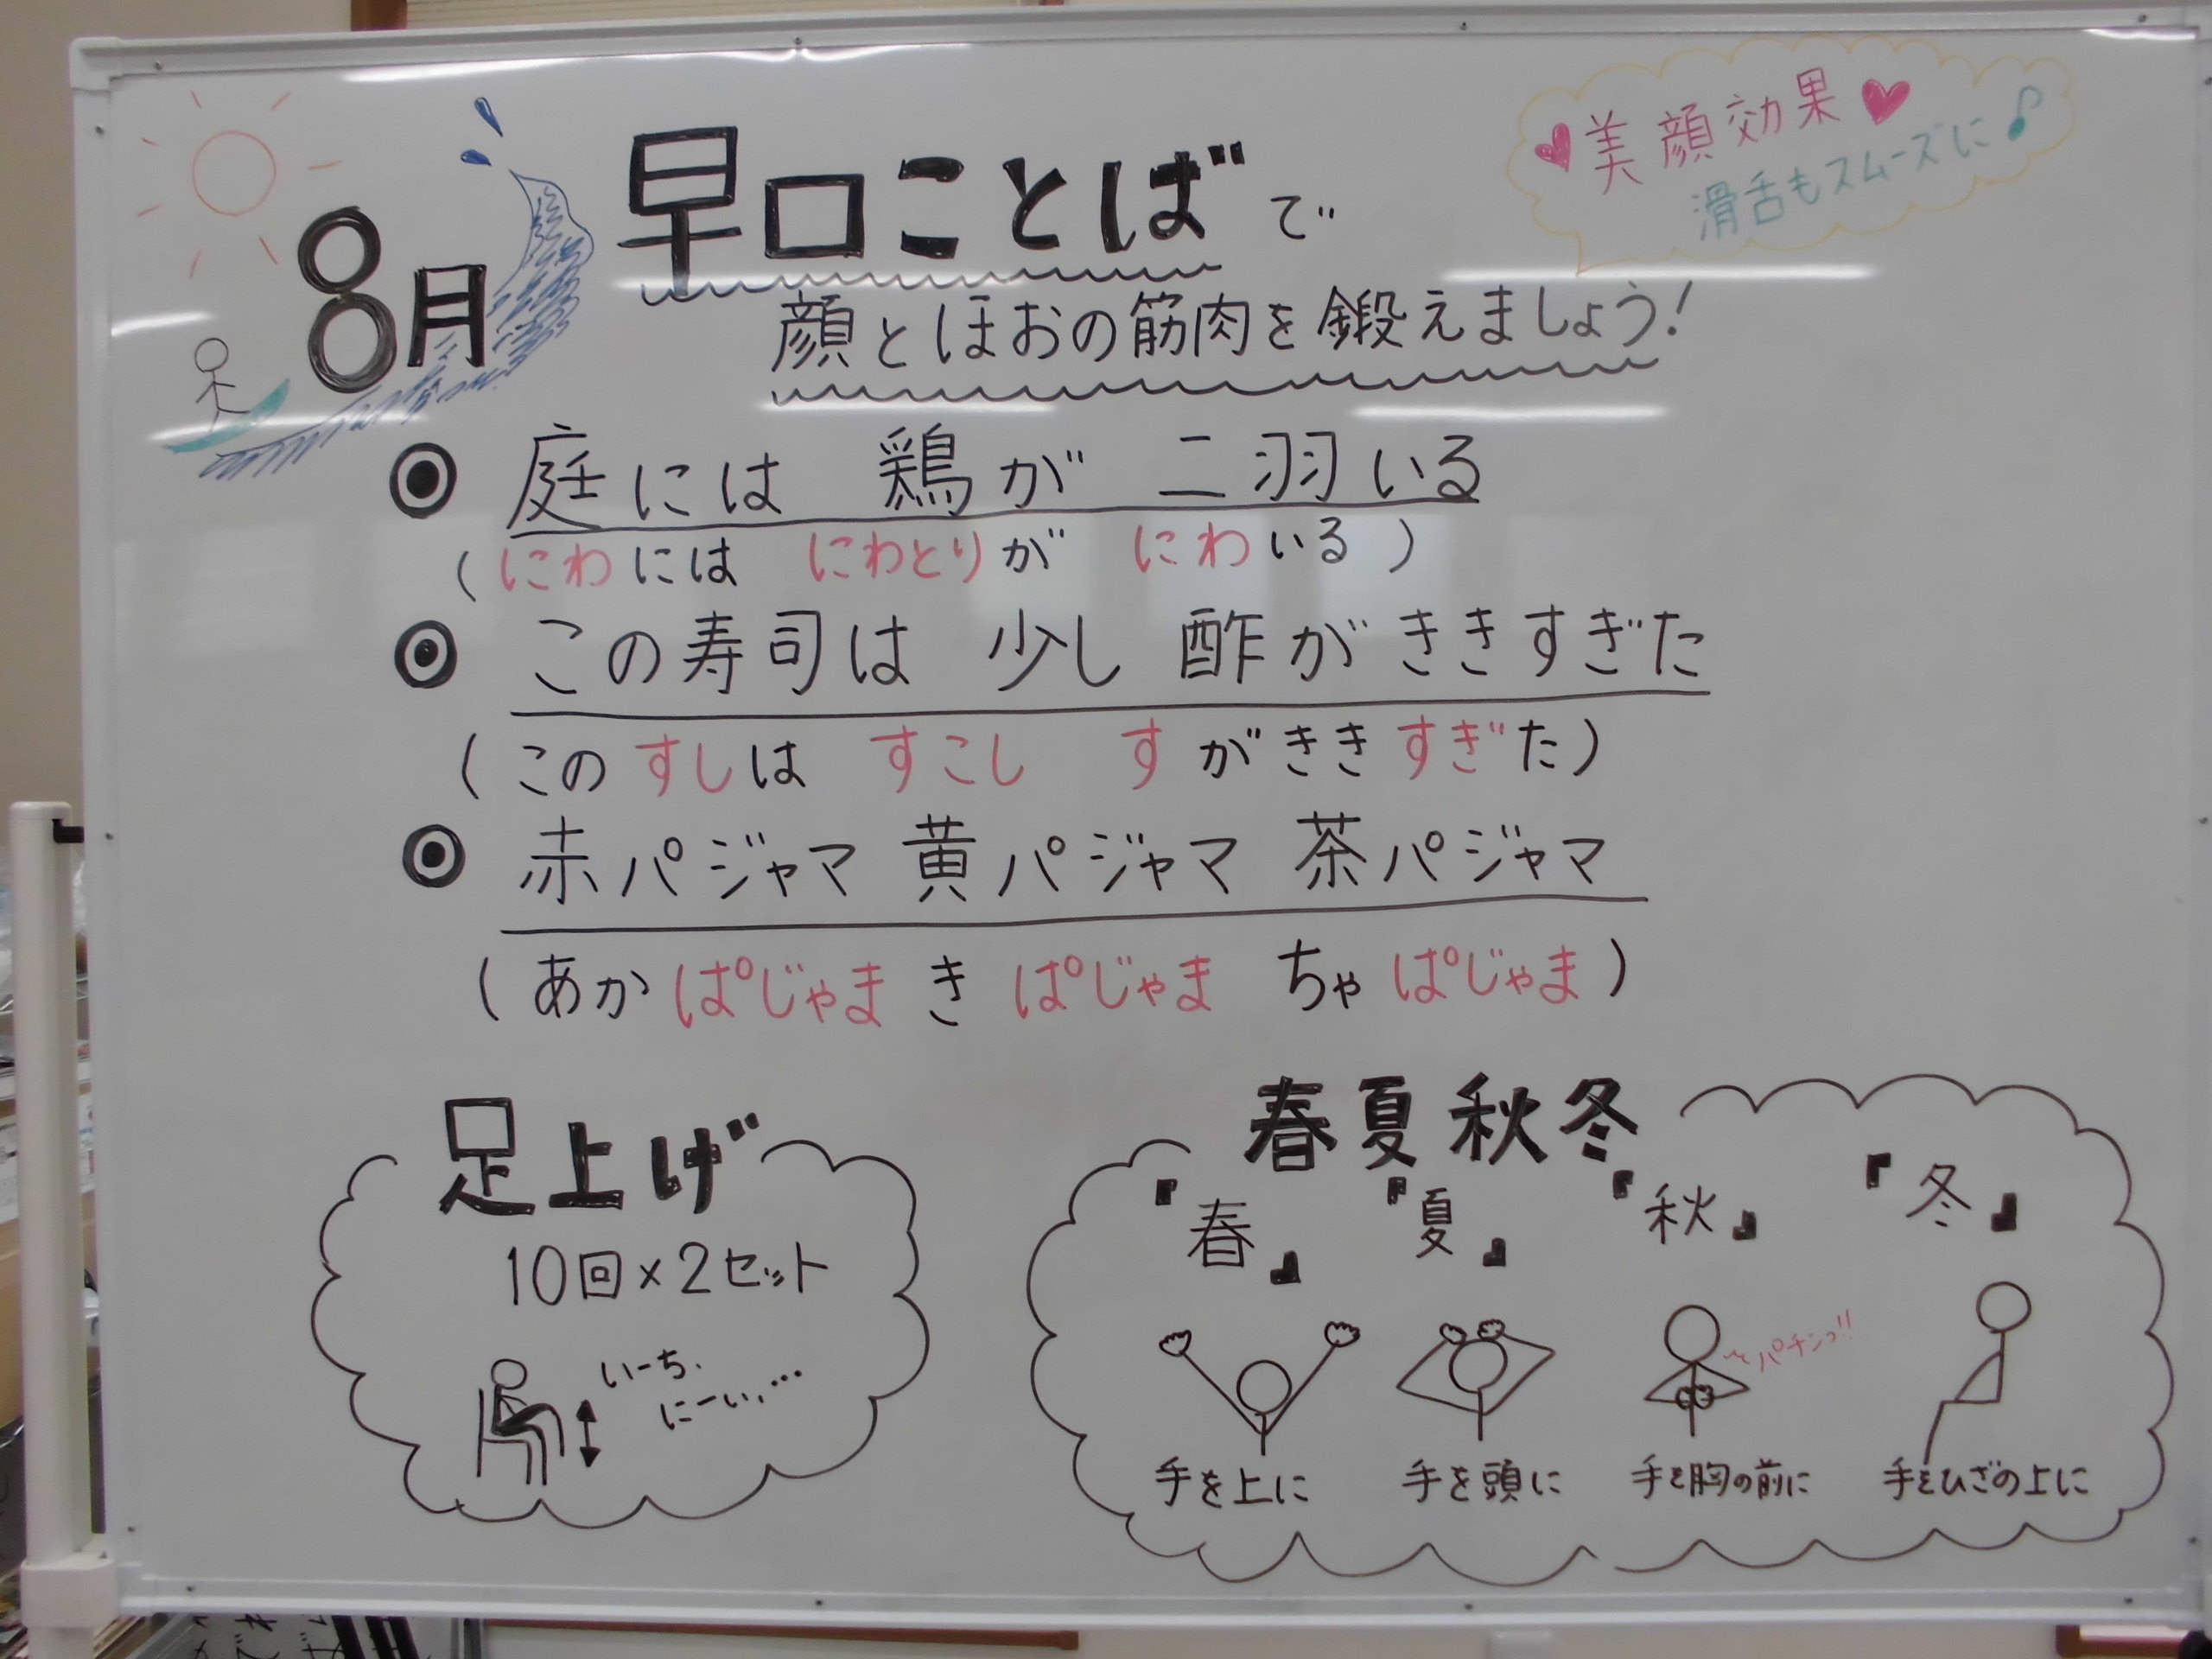 8月
早口ことばで
顔とほおの筋肉を鍛えましょう!
美顔効果
滑舌もスムーズに♪
庭には 鶏が 二羽いる
(にわには にわとりが にわいる)
この寿司は 少し 酢がききすぎた
(このすしは すこし すがききすぎた)
赤パジャマ 黄パジャマ 茶パジャマ
(あかぱじゃま きぱじゃま ちゃぱじゃま)
足上げ
10回×2セット
いーち、
にーい、…
春夏秋冬
『春』 『夏』 『秋』 『冬』
パチンっ!!
手を上に 手を頭に 手を胸の前に 手をひざの上に